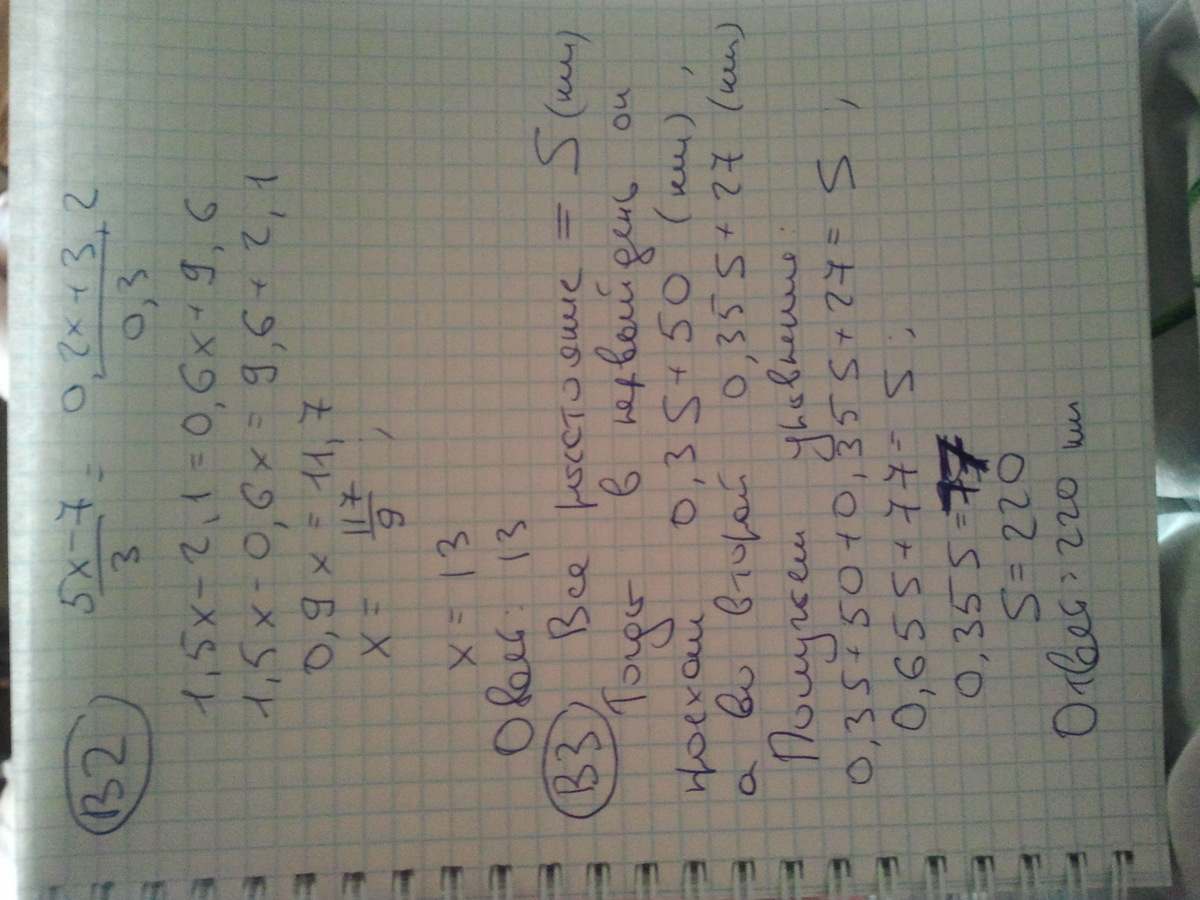 B2 (5x-7)/3 = (0,2x+3,2)/0,3
1,5x-2,1=0,6x+9,6
1,5x-0,6x=9,6+2,1
0,9x=11,7
x=117/9;
x=13
Ответ: 13
B3 Все расстояние = S (км)
Тогда в первый день он
проехал 0,3S+50 (км),
а во второй 0,35S+27 (км)
Получаем уравнение:
0,3S+50+0,35S+27=S;
0,65S+77=S;
0,35S=77
S=220
Ответ: 220 км